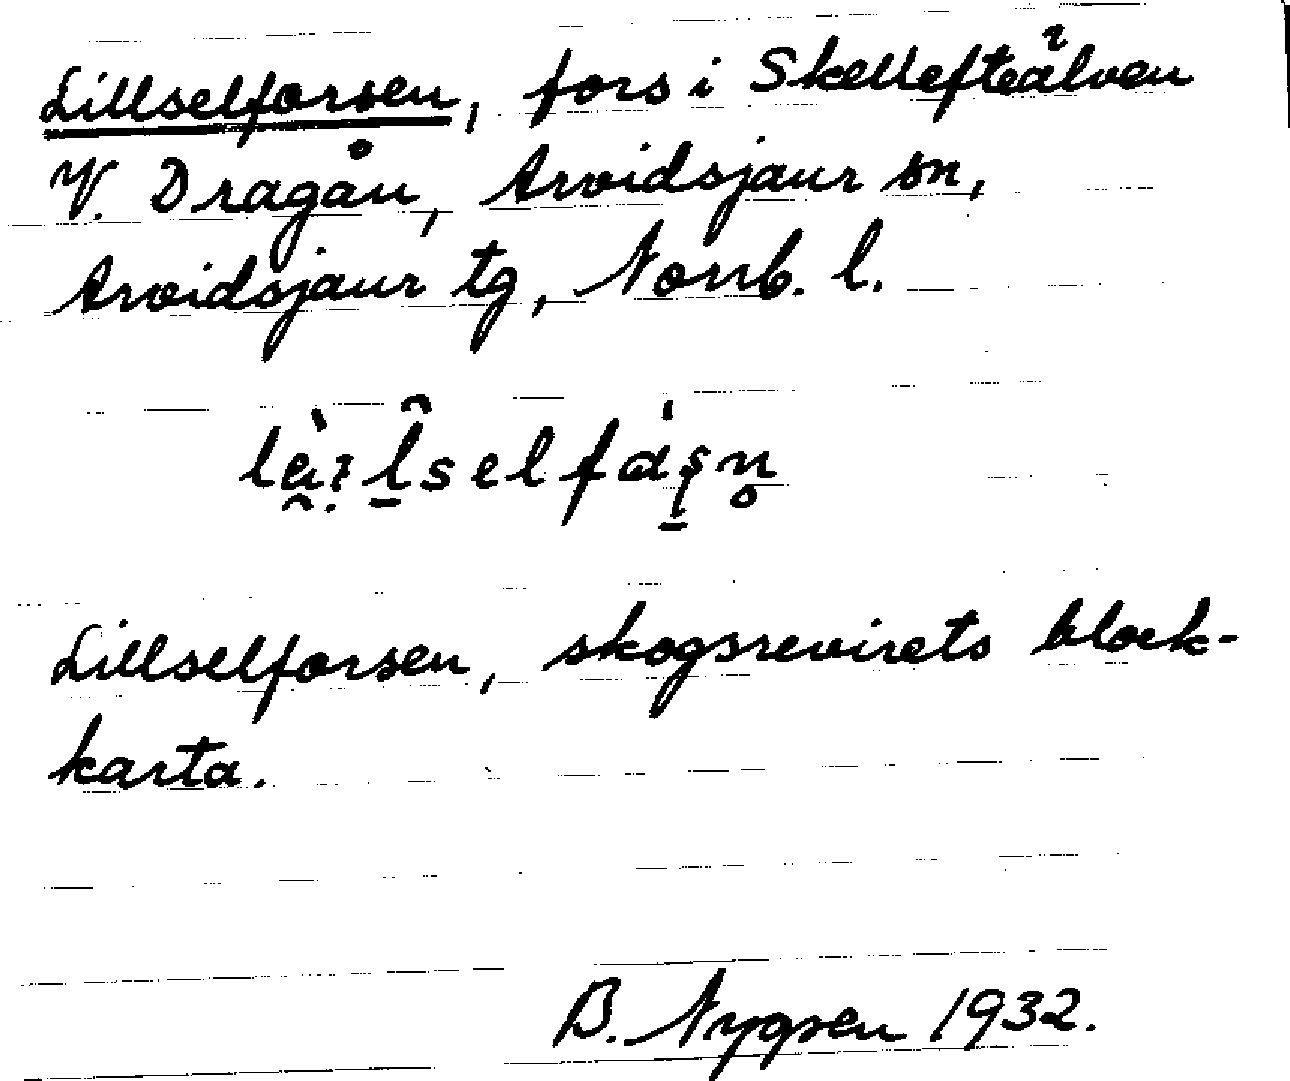 Lillselforsen, fors i Skellefteälven
V. Dragån, Arvidsjaur sn,
Arvidsjaur tg, Norrb. l.
Lillselforsen, skogsrevirets block-
karta.
B. Nygren 1932.